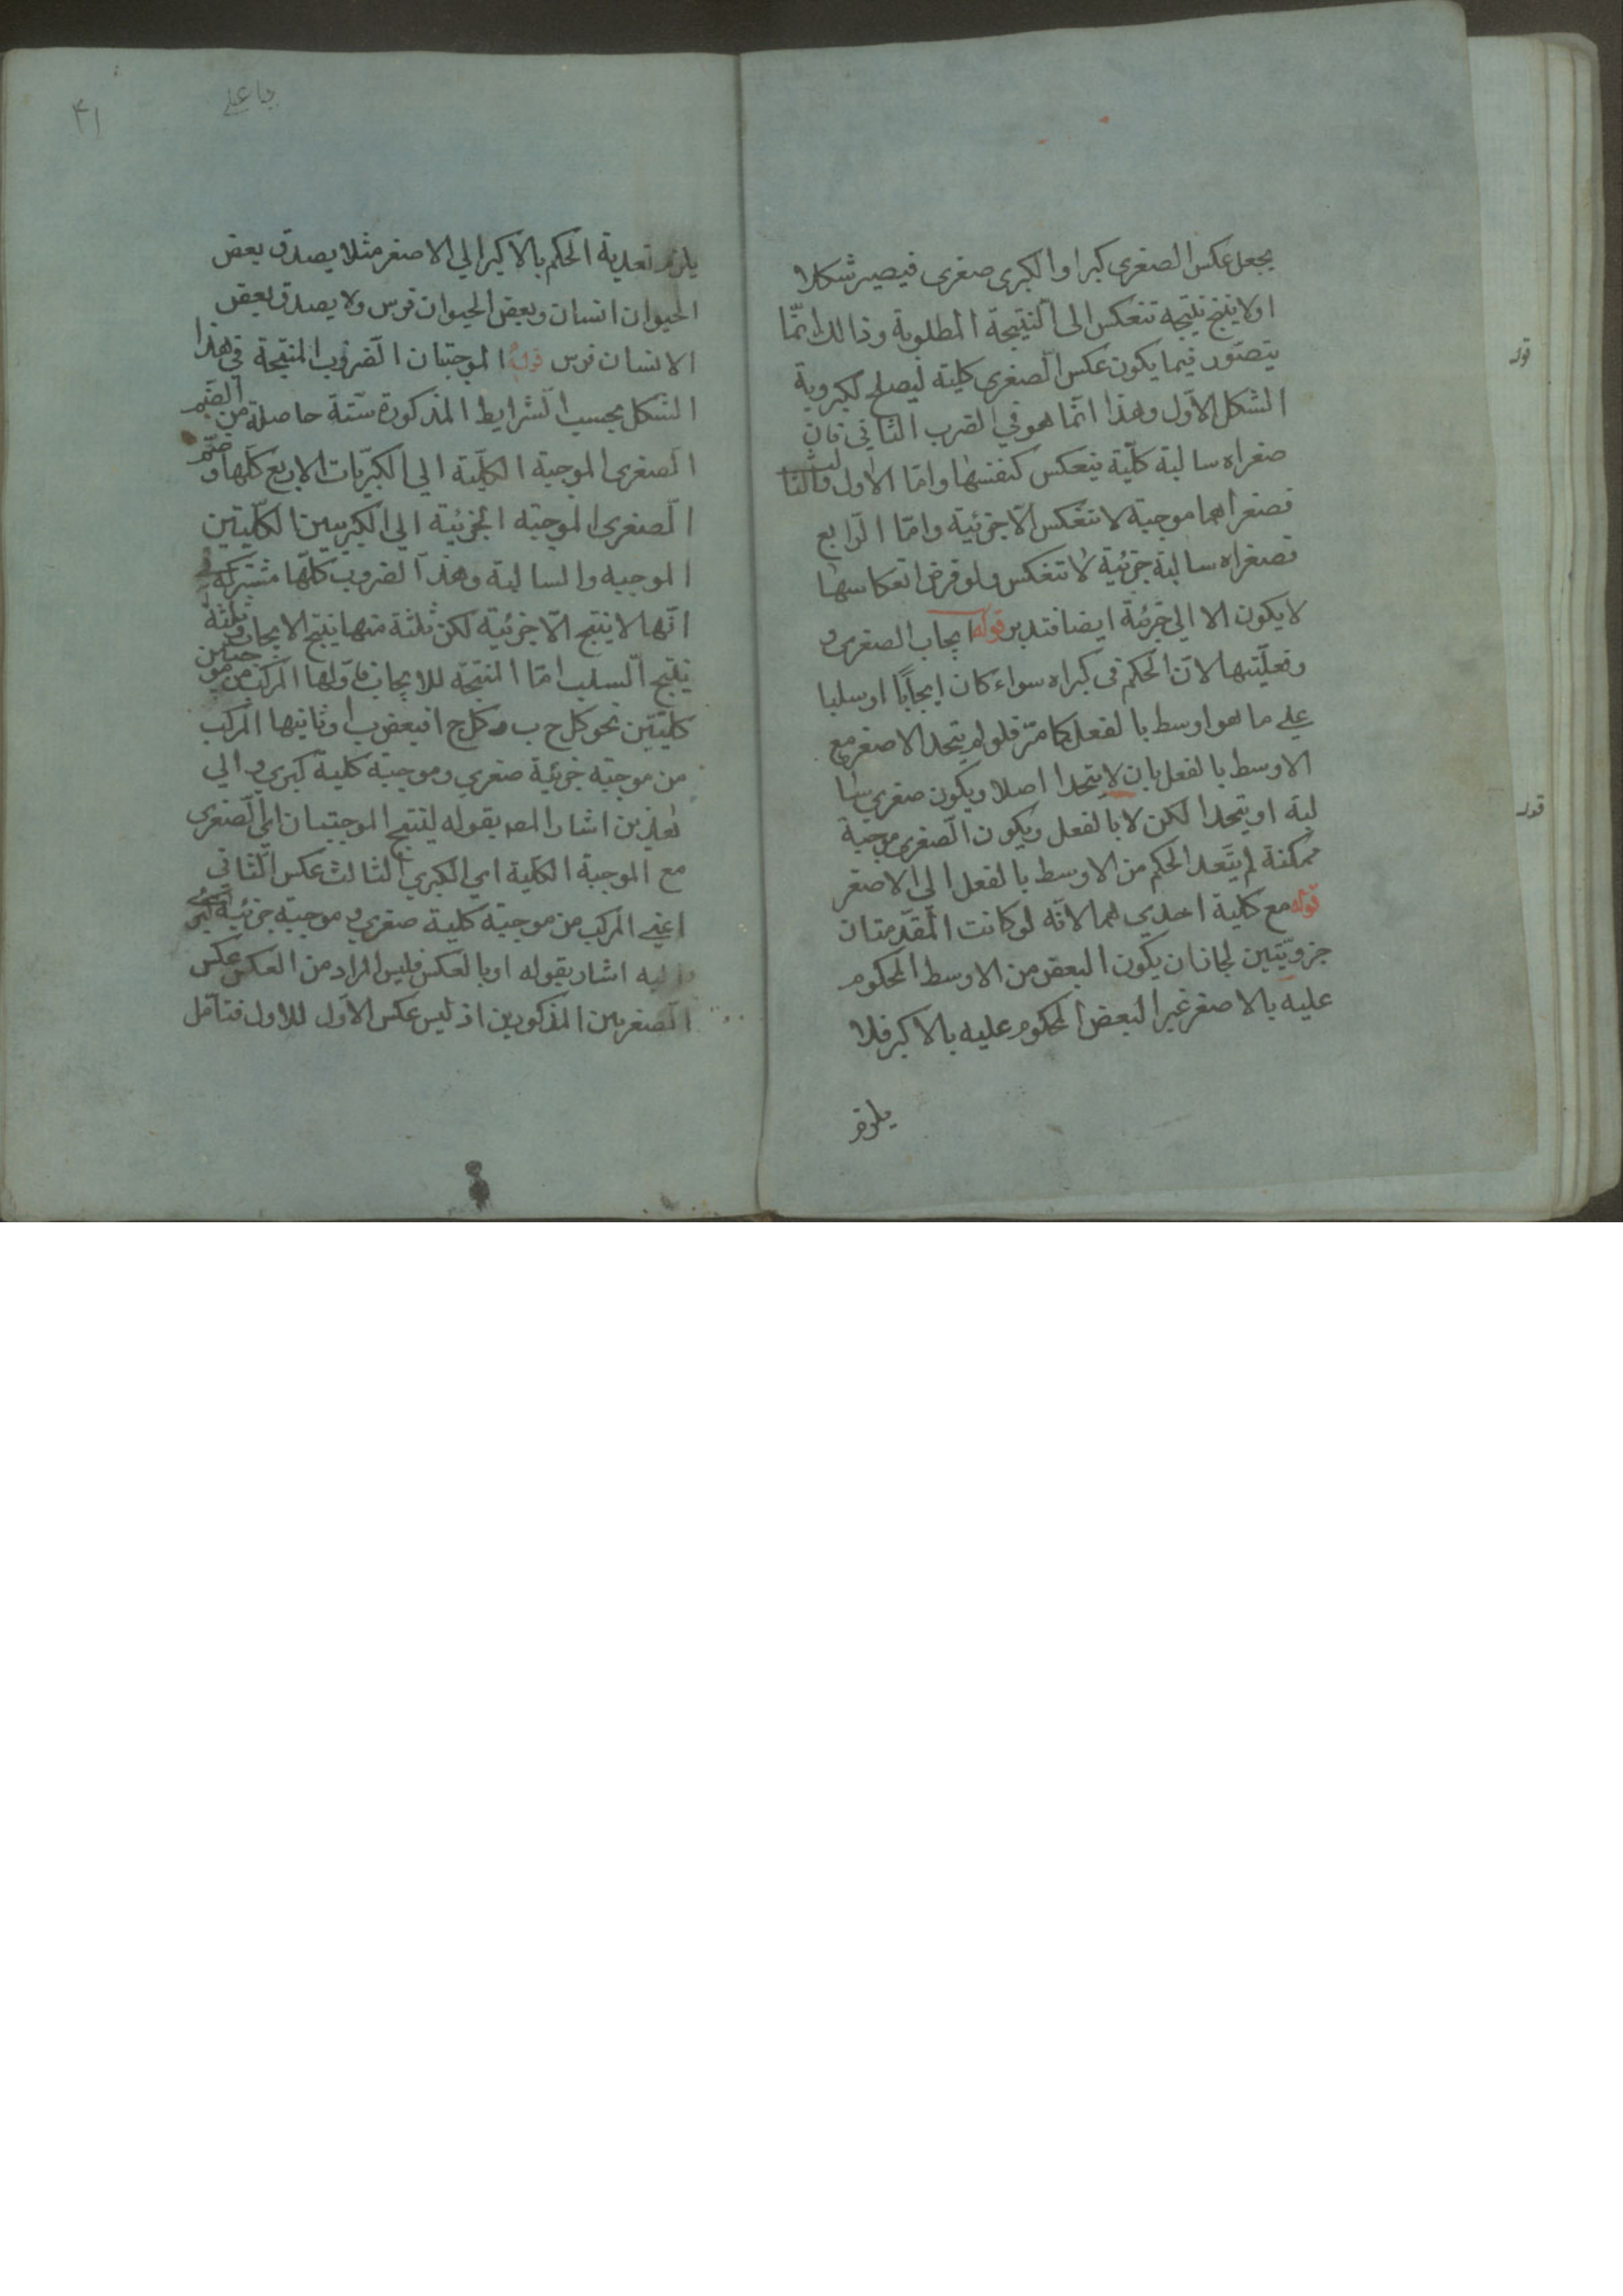 يجعل عكس الصغرى كبرا والكبرى صغرى فيصير شكلا
اولا ينتج نتيجة تنعكس الى النتيجة المطلوبة وذالك انمّا
يتصوّر فيما يكون عكس الصغرى كلية ليصلح لكبروية
الشكل الاوّل وهذا انمّا هو في الضرب الثاني فان
صغراه سالبة كليّة ينعكس كنفسها وامّا الاول والثالث
فصغراهما موجبة لا تنعكس الّا جزئية وامّا الرّابع
فصغراه سالبة جزئية لا تنعكس ولو فرض انعكاسها
لا يكون الا الى جزئية ايضا فتدبر قوله ايجاب الصغرى و
وفعليّتها لانّ الحكم في كبراه سواء كان ايجابًا او سلبا
على ما هو اوسط بالفعل كما مرّ فلو لم يتحد الاصغر مع
الاوسط بالفعل بان لا يتحدا اصلا ويكون صغرى سا
لبة او يتحدا لكن لا بالفعل ويكون الصّغرى موجبة
ممكنة لم يتعد الحكم من الاوسط بالفعل الى الاصغر
قوله مع كلية احدى هما لانّه لو كانت المقدّمتان
جزويّتين لجاز ان يكون البعض من الاوسط المحكوم
عليه بالاصغر غير البعض المحكوم عليه بالاكبر فلا
يلزم
قوله
قوله
۴۱
يا علي
يلزم تعدية الحكم بالاكبر الي الاصغر مثلا يصدق بعض
الحيوان انسان وبعض الحيوان فرس ولا يصدق بعض
الانسان فرس قوله الموجبتان الضروب المنتجة في هذا
الشكل بحسب الشرايط المذكورة ستة حاصلة من الضم
الصغرى الموجبة الكليّة الي الكبريّات الاربع كلها و ضمّ
الصغرى الموجبة الجزئية الى الكبريين الكليّتين
الموجبه والسالبة وهذا الضروب كلّها مشتركة في
انّها لا ينتج الّا جزئية لكن ثلثة منها ينتج الايجاب و ثلثة
ينتج السلب امّا المنتجة للايجاب فاوّلها المركب من موجبتين
كليتين نحو كل ج ب و كل ج ا فبعض ب ا وثانيها المركب
من موجبة جزئية صغرى وموجبة كلية كبرى و الي
هذين اشار المص بقوله لينتج الموجبتان اي الصّغرى
مع الموجبة الكلية اي الكبرى الثالث عكس الثاني
اعني المركب من موجبة كلية صغرى و موجبة جزئية كبرى
واليه اشار بقوله او بالعكس فليس المراد من العكس عكس
الصغريين المذكورين اذ ليس عكس الاوّل للاول فتامّل